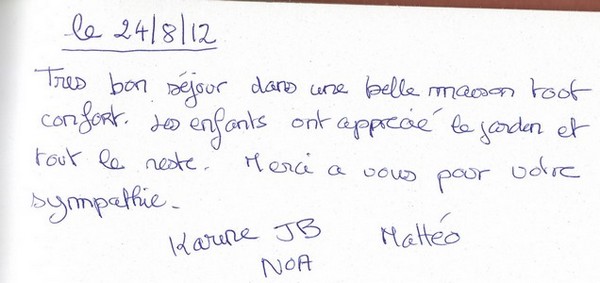 le 24/8/12
Tres bon séjour dans une belle maison tout
confort. Les enfants ont apprécié le jardin et
tout le reste. Merci a vous pour votre
sympathie.
Karine JB Mattéo
NOA